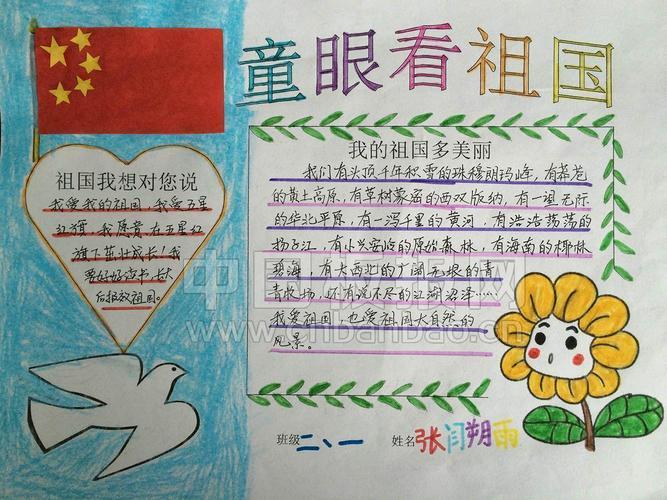 童眼看祖国
祖国我想对您说
我爱我的祖国，我爱五星
红旗，我愿意在五星红
旗下茁壮成长！我
要好好读书，长大
后报效祖国。
我的祖国多美丽
我们有头顶千年积雪的珠穆朗玛峰，有苍苍
的黄土高原，有草树蒙密的西双版纳，有一望无际
的华北平原，有一泻千里的黄河，有浩浩荡荡的
扬子江，有小兴安岭的原始森林，有海南的椰林
碧海，有大西北的广阔无垠的青
青牧场，还有说不尽的江湖沼泽……
我爱祖国，也爱祖国大自然的
风景。
班级 二、一 姓名 张闫朔雨
中国板报网
www.cnbanbao.cn